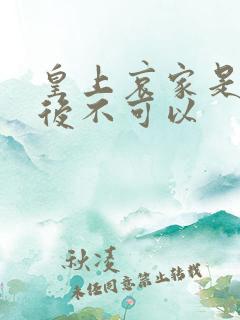 皇上哀家是
後不可以
秋凌
未经同意禁止转载